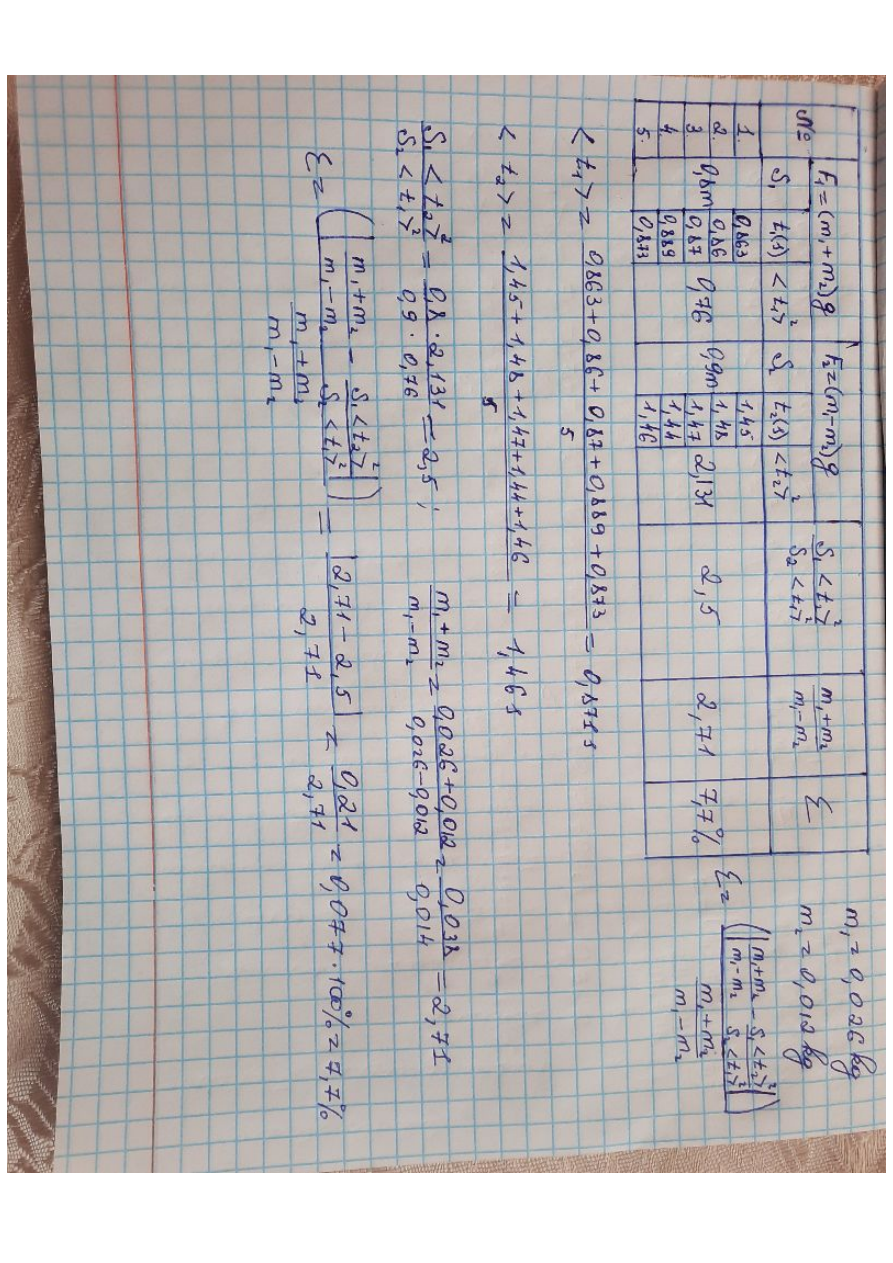 № F₁=(m₁+m₂)g F₂=(m₁-m₂)g S₁<t₂>²/S₂<t₁>² (m₁+m₂)/(m₁-m₂) ε
S₁ t₁(s) <t₁>² S₂ t₂(s) <t₂>²
1. 0,863 1,45
2. 0,86 1,48
3. 0,8m 0,87 0,76 0,9m 1,47 2,131 2,5 2,71 7,7%
4. 0,889 1,44
5. 0,873 1,46
m₁=0,026 kg
m₂=0,012 kg
ε=(|(m₁+m₂)/(m₁-m₂) - S₁<t₂>²/S₂<t₁>²|)/((m₁+m₂)/(m₁-m₂))
<t₁>=(0,863+0,86+0,87+0,889+0,873)/5=0,871s
<t₂>=(1,45+1,48+1,47+1,44+1,46)/5=1,46s
S₁<t₂>²/S₂<t₁>²=(0,8·2,131)/(0,9·0,76)=2,5; (m₁+m₂)/(m₁-m₂)=(0,026+0,012)/(0,026-0,012)=0,038/0,014=2,71
ε=(|(m₁+m₂)/(m₁-m₂) - S₁<t₂>²/S₂<t₁>²|)/((m₁+m₂)/(m₁-m₂))=|2,71-2,5|/2,71=0,21/2,71=0,077·100%=7,7%